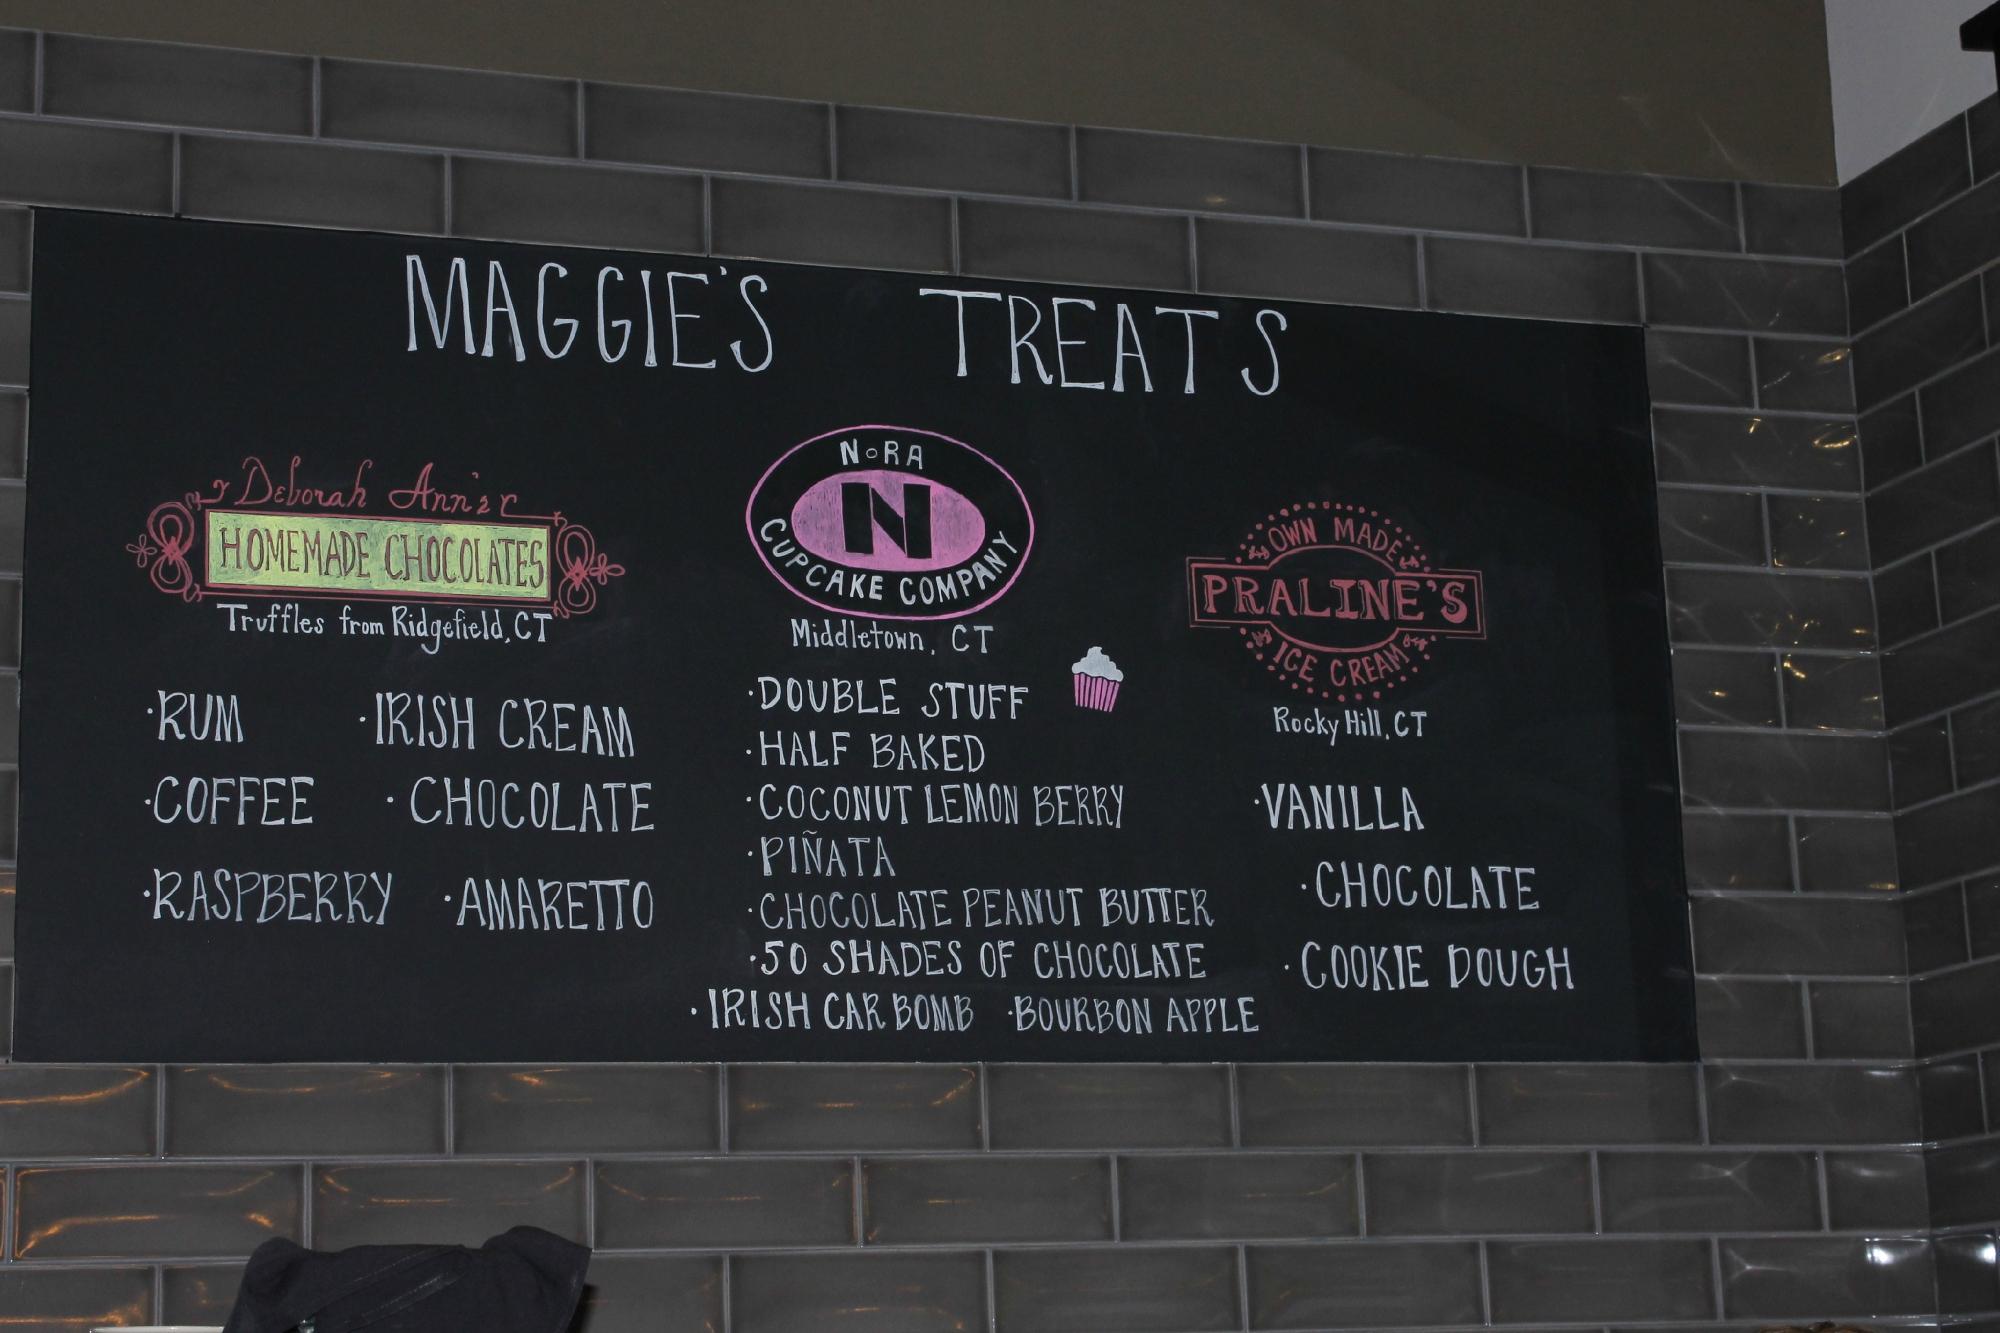 MAGGIE'S TREATS
Deborah Ann's
HOMEMADE CHOCOLATES
Truffles from Ridgefield, CT
·RUM ·IRISH CREAM
·COFFEE ·CHOCOLATE
·RASPBERRY ·AMARETTO
NORA
N
CUPCAKE COMPANY
Middletown, CT
·DOUBLE STUFF
·HALF BAKED
·COCONUT LEMON BERRY
·PIÑATA
·CHOCOLATE PEANUT BUTTER
·50 SHADES OF CHOCOLATE
·IRISH CAR BOMB ·BOURBON APPLE
OWN MADE
PRALINE'S
ICE CREAM
Rocky Hill, CT
·VANILLA
·CHOCOLATE
·COOKIE DOUGH